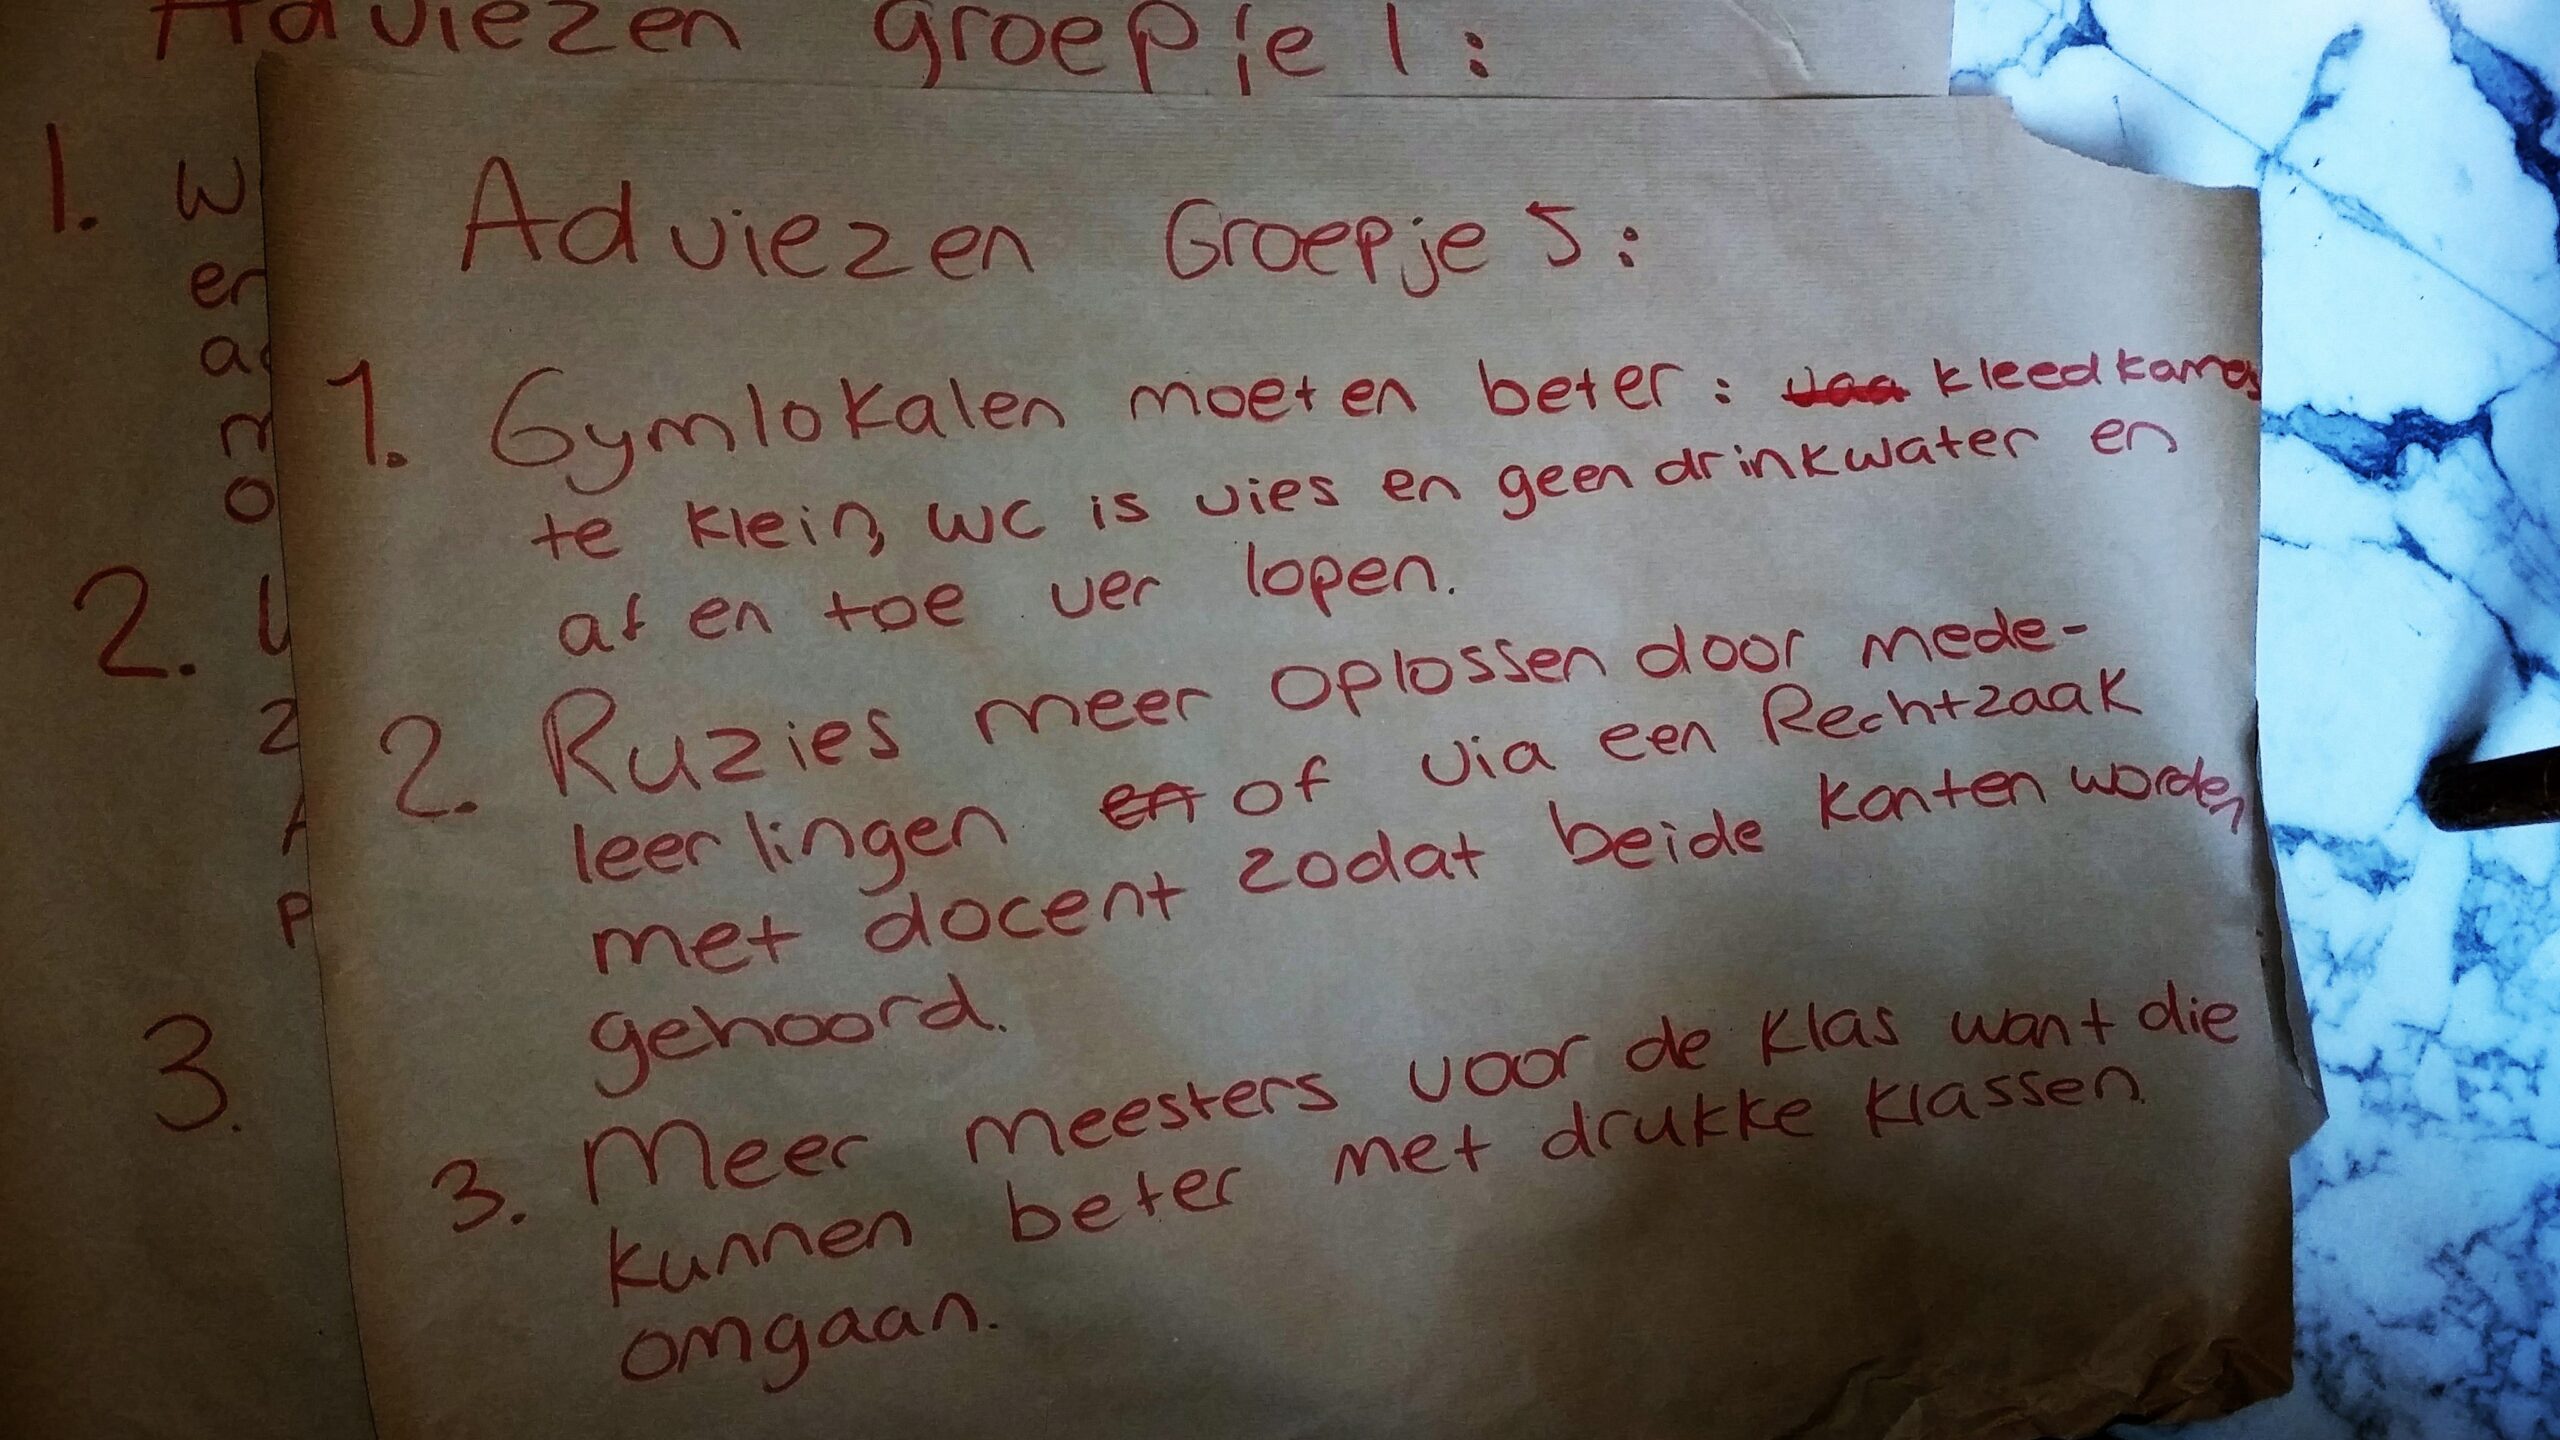 Adviezen groepje 1:
1. w
er
m
o
2.
z
P
3.
Adviezen Groepje 5:
1. Gymlokalen moeten beter: vaa kleedkamers
te klein, wc is vies en geen drinkwater en
af en toe ver lopen.
2. Ruzies meer oplossen door mede-
leerlingen en of via een Rechtzaak
met docent zodat beide kanten worden
gehoord.
3. Meer meesters voor de klas want die
kunnen beter met drukke klassen
omgaan.